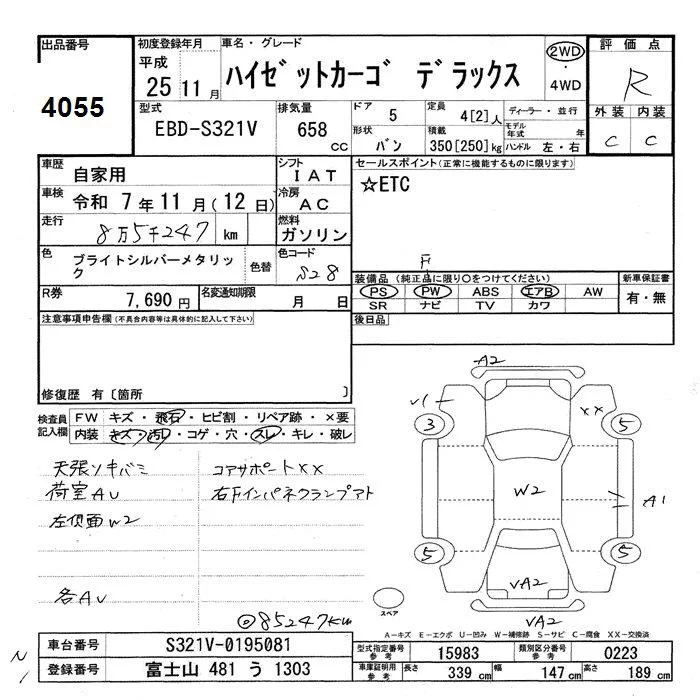 出品番号 4055
初度登録年月 平成 25 11月
車名・グレード ハイゼットカーゴ デラックス
2WD・4WD
評価点 R
外装 C 内装 C
型式 EBD-S321V
排気量 658 CC
ドア 5
形状 バン
定員 4[2]人
積載 350[250]kg
ディーラー・並行
モデル年式 年
ハンドル 左・右
車歴 自家用
シフト IAT
セールスポイント(正常に機能するものに限ります)
☆ETC
車検 令和 7年11月(12日)
冷房 AC
走行 8万5千247 km
燃料 ガソリン
色 ブライトシルバーメタリック
色替
色コード S28
F
装備品(純正品に限り○をつけてください)
新車保証書
PS PW ABS エアB AW
SR ナビ TV カワ
有・無
R券 7,690円
名変通知期限 月 日
後日品
注意事項申告欄(不具合内容等は具体的に記入して下さい)
修復歴 有〔箇所 〕
検査員記入欄
FW キズ・飛石・ヒビ割・リペア跡・×要
内装 キズ・汚レ・コゲ・穴・スレ・キレ・破レ
天張ソキバミ コアサポートXX
荷室AU 右Fインパネクランプアト
左側面W2
各AU
◎85247km
A2
V1 XX
3 5
W2 A1
5 5
VA2
スペア
VA2
A-キズ E-エクボ U-凹み W-補修跡 S-サビ C-腐食 XX-交換済
車台番号 S321V-0195081
型式指定番号 参考 15983
類別区分番号 参考 0223
N1
登録番号 富士山 481 う 1303
車庫証明用 参考 長さ 339 cm 幅 147 cm 高さ 189 cm